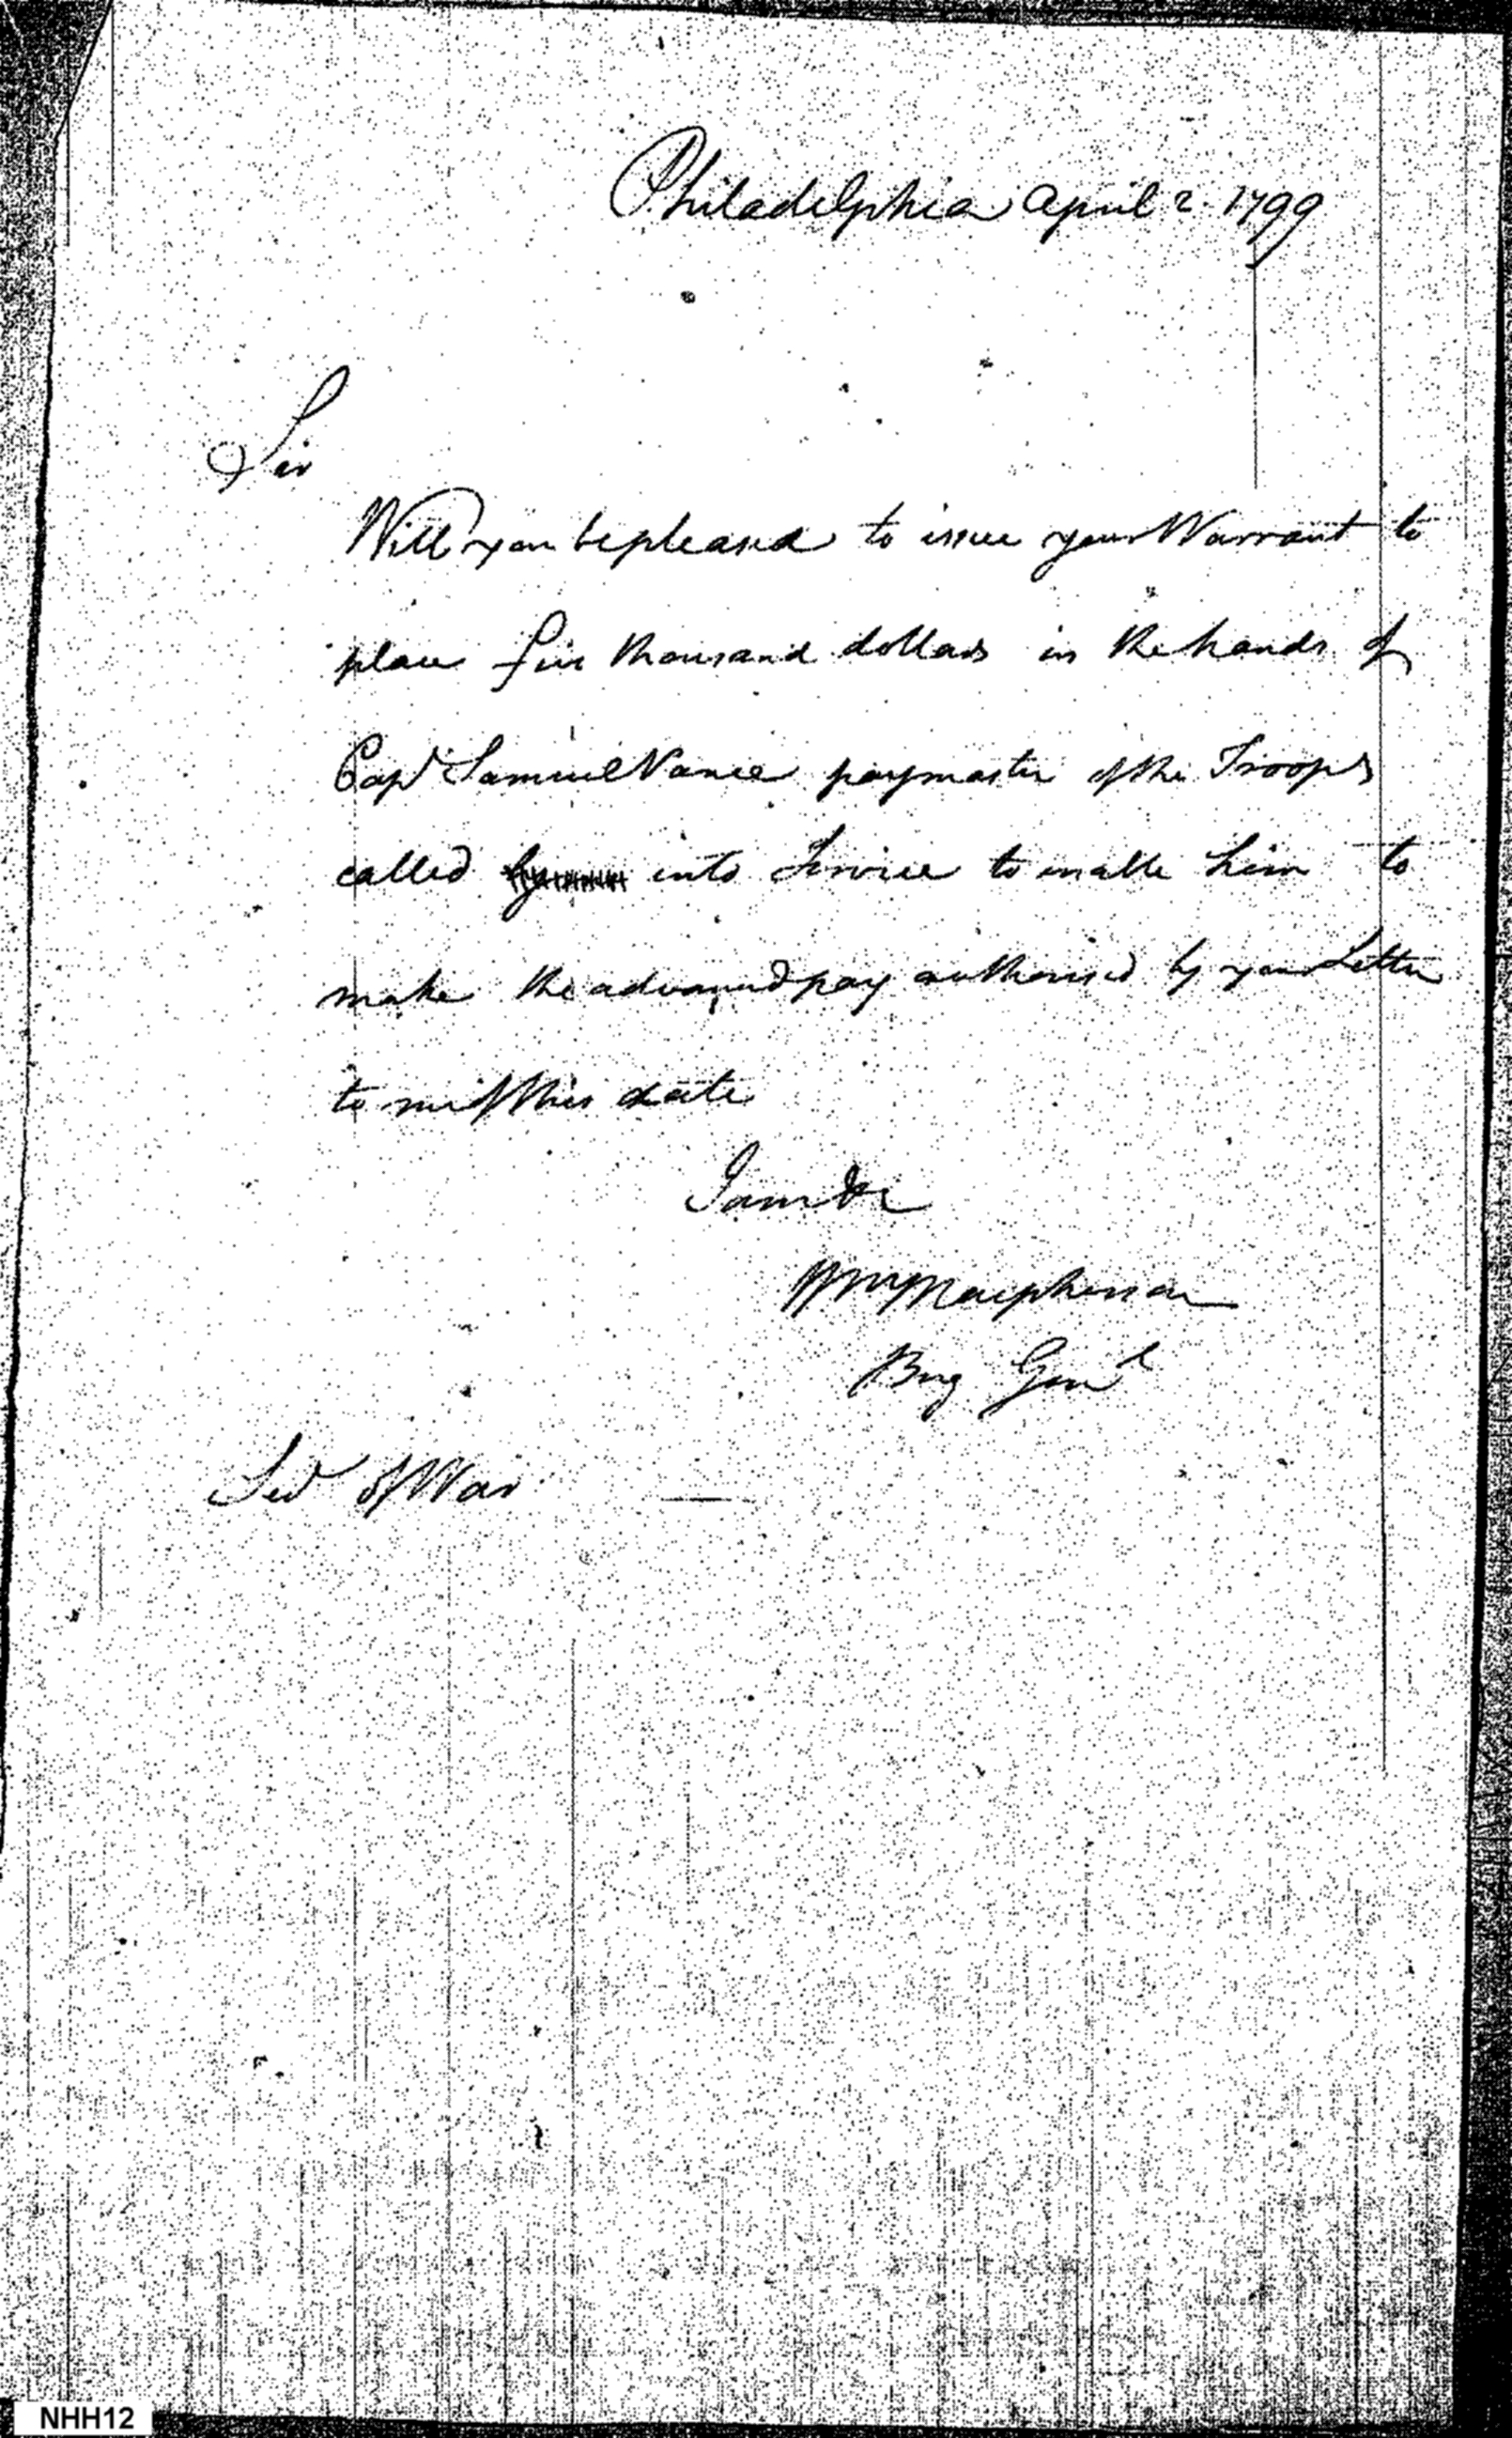 Philadelphia April 2. 1799
Sir
Will you be pleased to issue your Warrant to
place five thousand dollars in the hands of
Capt Samuel Vance paymaster of the Troops
called into Service to enable him to
make the advanced pay authorised by your Letter
to me of this date
I am &c
Wm Macpherson
Brig Genl
Sec of War
NHH12